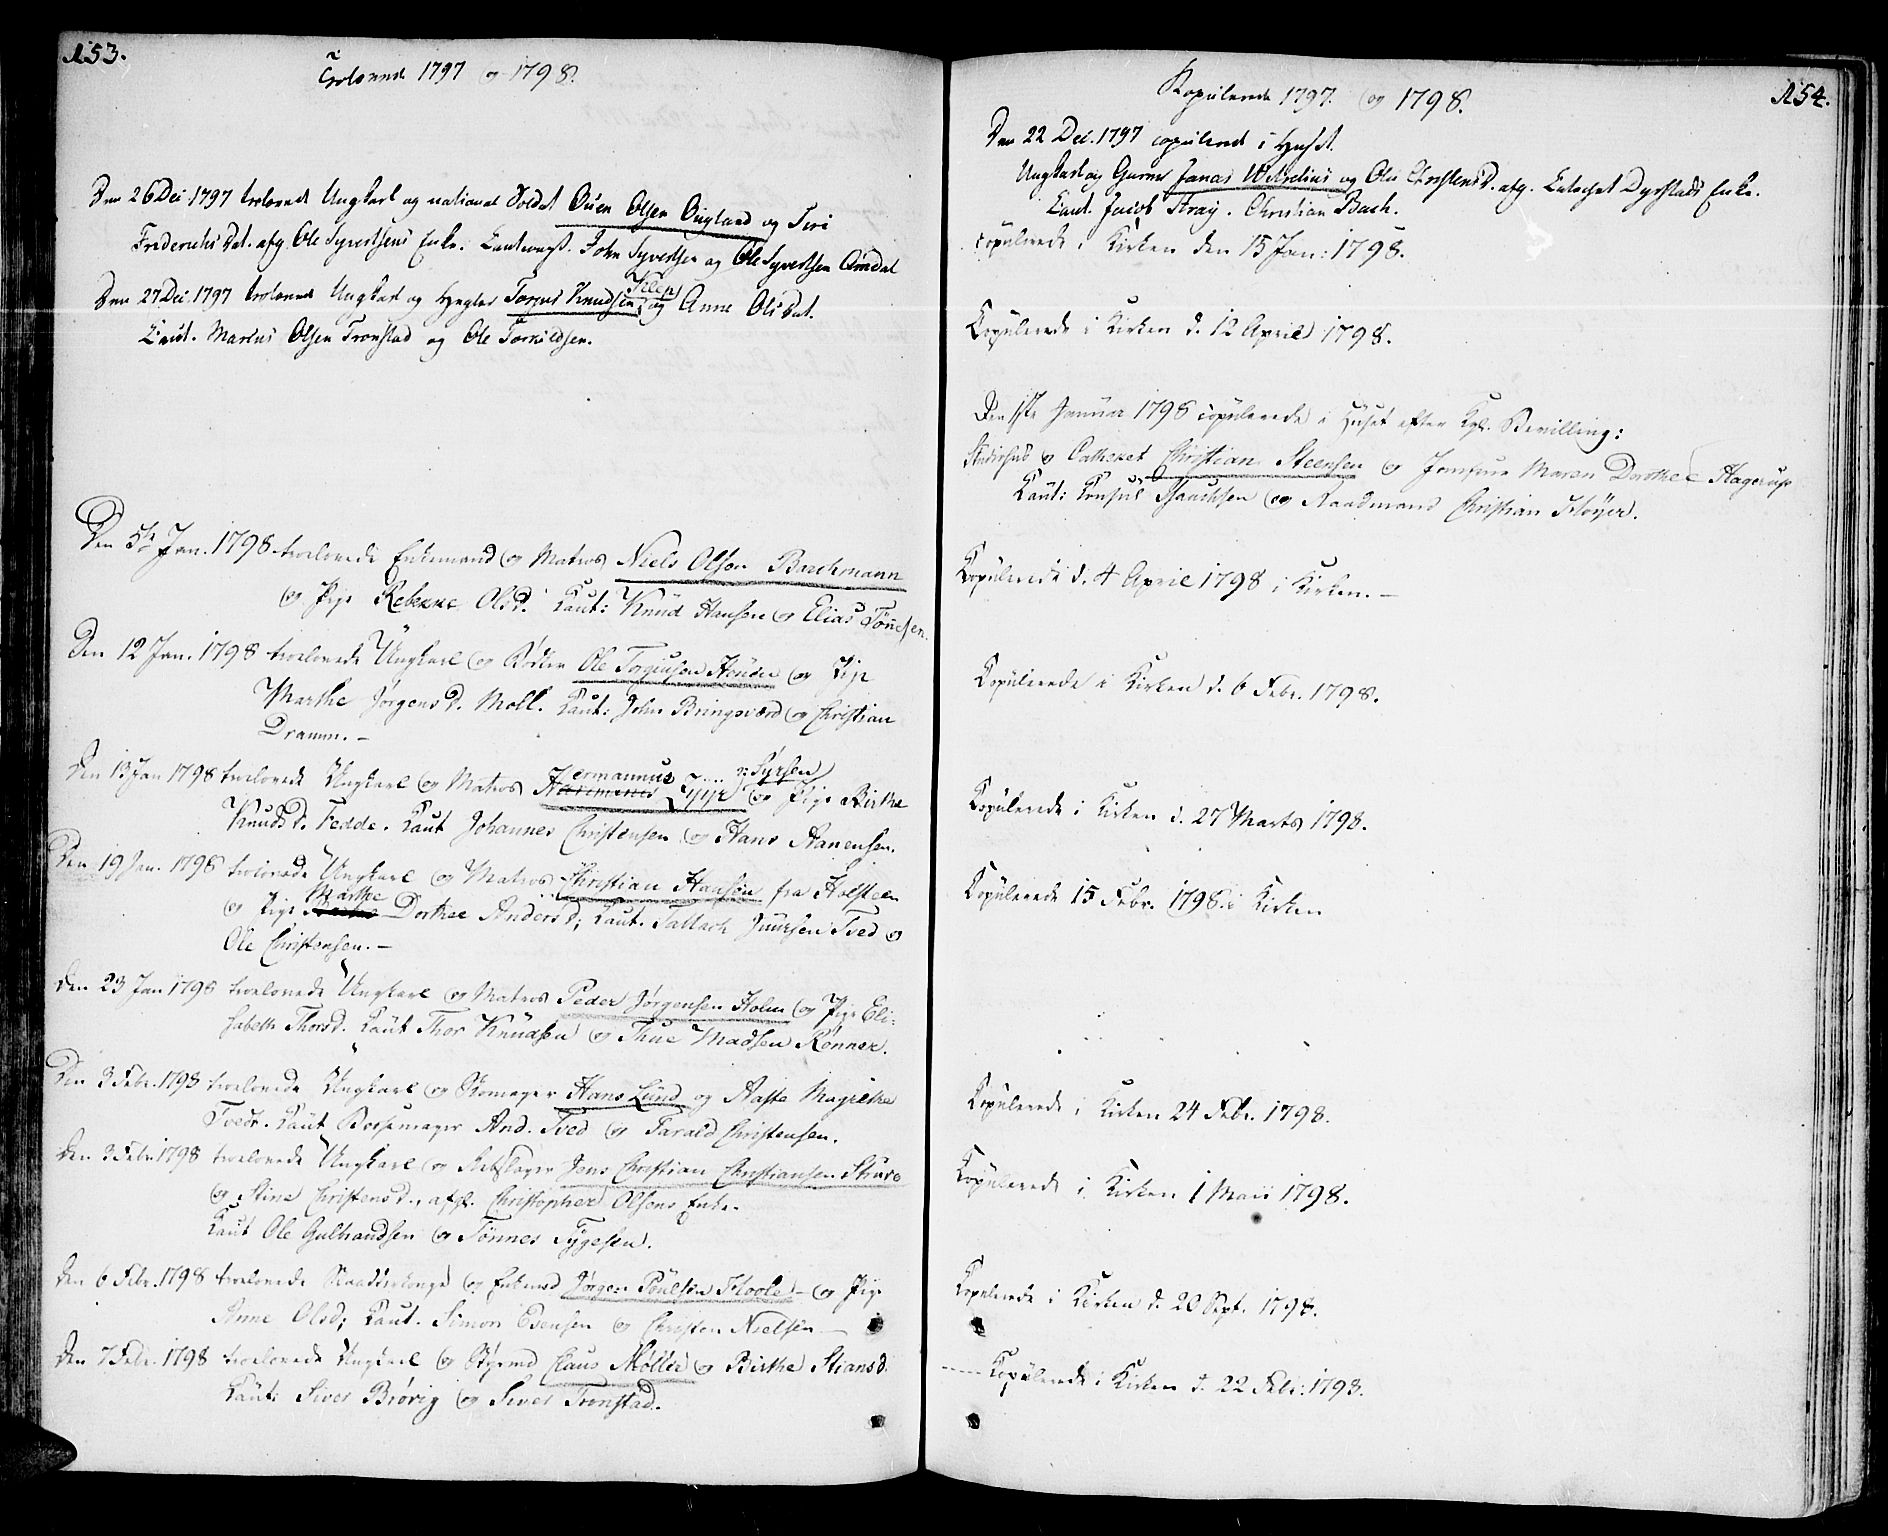 153.
Trolovede 1797 og 1798.
Den 26 Dec 1797 trolovede Ungkarl og national Soldat Ouen Olsen Bugland og Siri
Frederichs Dat. afg. Ole Syvertsens Enke. Caut. John Syvertsen og Ole Syvertsen Omdal
Den 27 Dec. 1797 trolovede Ungkarl og Torjus Knudsen Klep og Anne Olsdat.
Caut. Marcus Olsen Tronstad og Ole Torkildsen.
Den 5te Jan. 1798 troelovede Enkemand og Matros Niels Olsen Bachmann
og Pige Rebekke Olsd. Caut: Knud Hansen og Elias Tönesen.
Den 12 Jan. 1798 troelovede Ungkarl og Bödker Ole Torgiusen og Pige
Marthe Jørgensd. Moll. Caut: John Bringsværd og Christian
Dramm. –
Den 13 Jan 1798 troelovede Ungkarl og Matros Hermannus Syrsen og Pige Birthe
Knudsd. Fedde. Caut Johannes Christensen og Hans Aanensen.
Den 19 Jan. 1798 troelovede Ungkarl og Matros Christian Hansen fra Holsteen
og Pige Marthe Dorthee Andersd; Caut. Tallach Juursen Tved og
Ole Christensen. –
Den 23 Jan 1798 troelovede Ungkarl og Matros Peder Jørgensen Holm og Pige Eli-
sabeth Thorsd. Caut Thor Knudsen og Thue Madsen Rønner.
Den 3 Febr. 1798 troelovede Ungkarl og Skomager Hans Lund og Aaste Magrethe
Tvedt. Caut And. Tved og Tarald Christensen.
Den 3 Febr 1798 troelovede Ungkarl og Rebslager Jens Christian Christiansen Struve
og Stine Christensd., afgl. Christopher Olsens Enke.
Caut Ole Gulbrandsen og Tönnes Tygesen.
Den 6 Febr. 1798 troelovede og Enkemd Jørgen Poulsen Floole – og Pige
Anne Olsd; Caut. Simon Esensen og Christen Nielsen –
Den 7 Febr. 1798 troelovede Ungkarl og Styrmd Claus Møller og Birthe Stiansd.
Caut: Siver Brövig og Siver Tronstad.
154.
Kopulerede 1797. og 1798.
Den 22 Dec. 1797 copulered i Huset.
Ungkarl og Jonas Wetrelius og Christensd. afg. Catechet Dyrstads Enke.
Caut. Jacob Stray. Christian Bach.
copulerede i Kirken den 15 Jan: 1798.
Copulerede i Kirken d. 12 April 1798.
Den 1ste Januar 1798 copulerede i Huset efter Kgl. Bevilling:
Studiosus og Catheket Christian Steensen og Jomfrue Maren Dorothee Hagerup
Caut: Consul Isaachsen og Raadmand Christian Fløyer.
Copulerede d. 4 April 1798 i Kirken. –
Copulerede i Kirken d. 6 Febr. 1798.
Copulerede i Kirken d. 27 Marts 1798.
Copulerede 15 Febr. 1798. i Kirken
Copulerede i Kirken 24 Febr. 1798.
Copulerede i Kirken 1 Maii 1798.
Copulerede i Kirken d. 20 Sept. 1798.
Copulerede i Kirken d. 22 Febr: 1798.